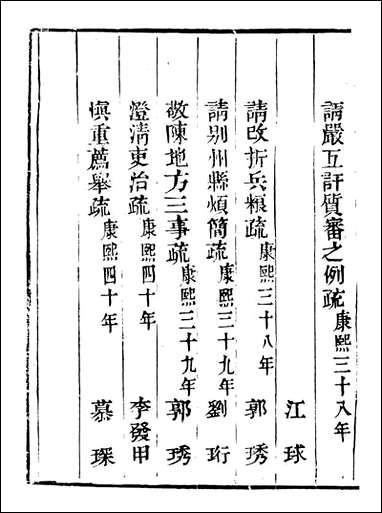 請嚴互訐質審之例疏康熙三十八年
江球
請改折兵糧疏康熙三十八年 郭琇
請別州縣煩簡疏康熙三十九年 劉珩
敬陳地方三事疏康熙三十九年 郭琇
澄清吏治疏康熙四十年 李發甲
慎重薦舉疏康熙四十年 慕琛